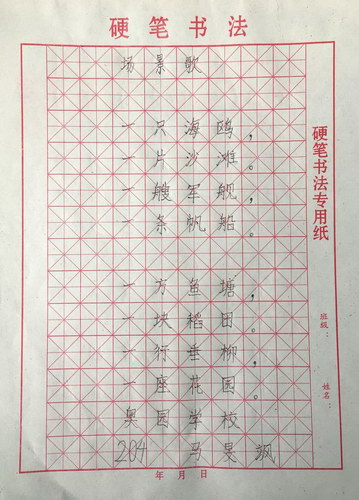 硬笔书法
场景歌
一只海鸥，
一片沙滩。
一艘军舰，
一条帆船。
一方鱼塘，
一块稻田。
一行垂柳，
一座花园。
奥园学校
204 马旻飒
硬笔书法专用纸
班级：
姓名：
年月日